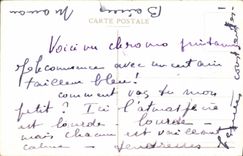 Bonne Maman
CARTE POSTALE
Voici un chrono printanier
commence avec un certain
tailleur bleu!
comment vas tu mon
petit? Ici l'atmosphère
est lourde - lourde -
mais chacun est vaillant
calme - tendresses